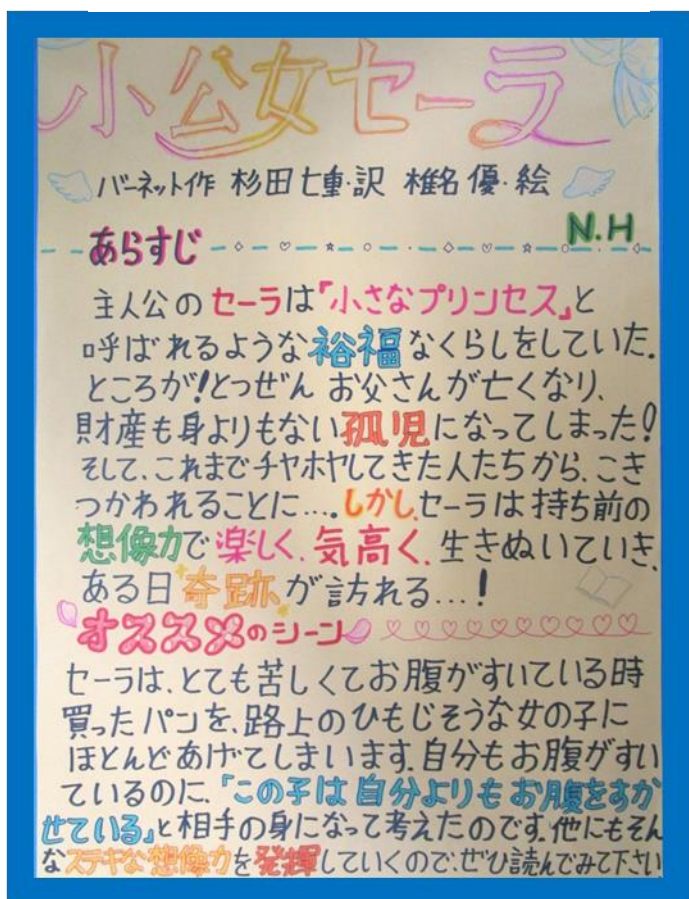 小公女セーラ
バーネット作 杉田七重・訳 椎名優・絵
N.H
あらすじ
主人公のセーラは「小さなプリンセス」と
呼ばれるような裕福なくらしをしていた。
ところが!とつぜん お父さんが亡くなり、
財産も身よりもない孤児になってしまった!
そして、これまでチヤホヤしてきた人たちから、こき
つかわれることに…。しかし、セーラは持ち前の
想像力で楽しく、気高く、生きぬいていき、
ある日奇跡が訪れる…!
オススメのシーン
セーラは、とても苦しくてお腹がすいている時
買ったパンを、路上のひもじそうな女の子に
ほとんどあげてしまいます。自分もお腹がすい
ているのに、「この子は自分よりもお腹をすか
せている」と相手の身になって考えたのです。他にもそん
なステキな想像力を発揮していくので、ぜひ読んでみて下さい